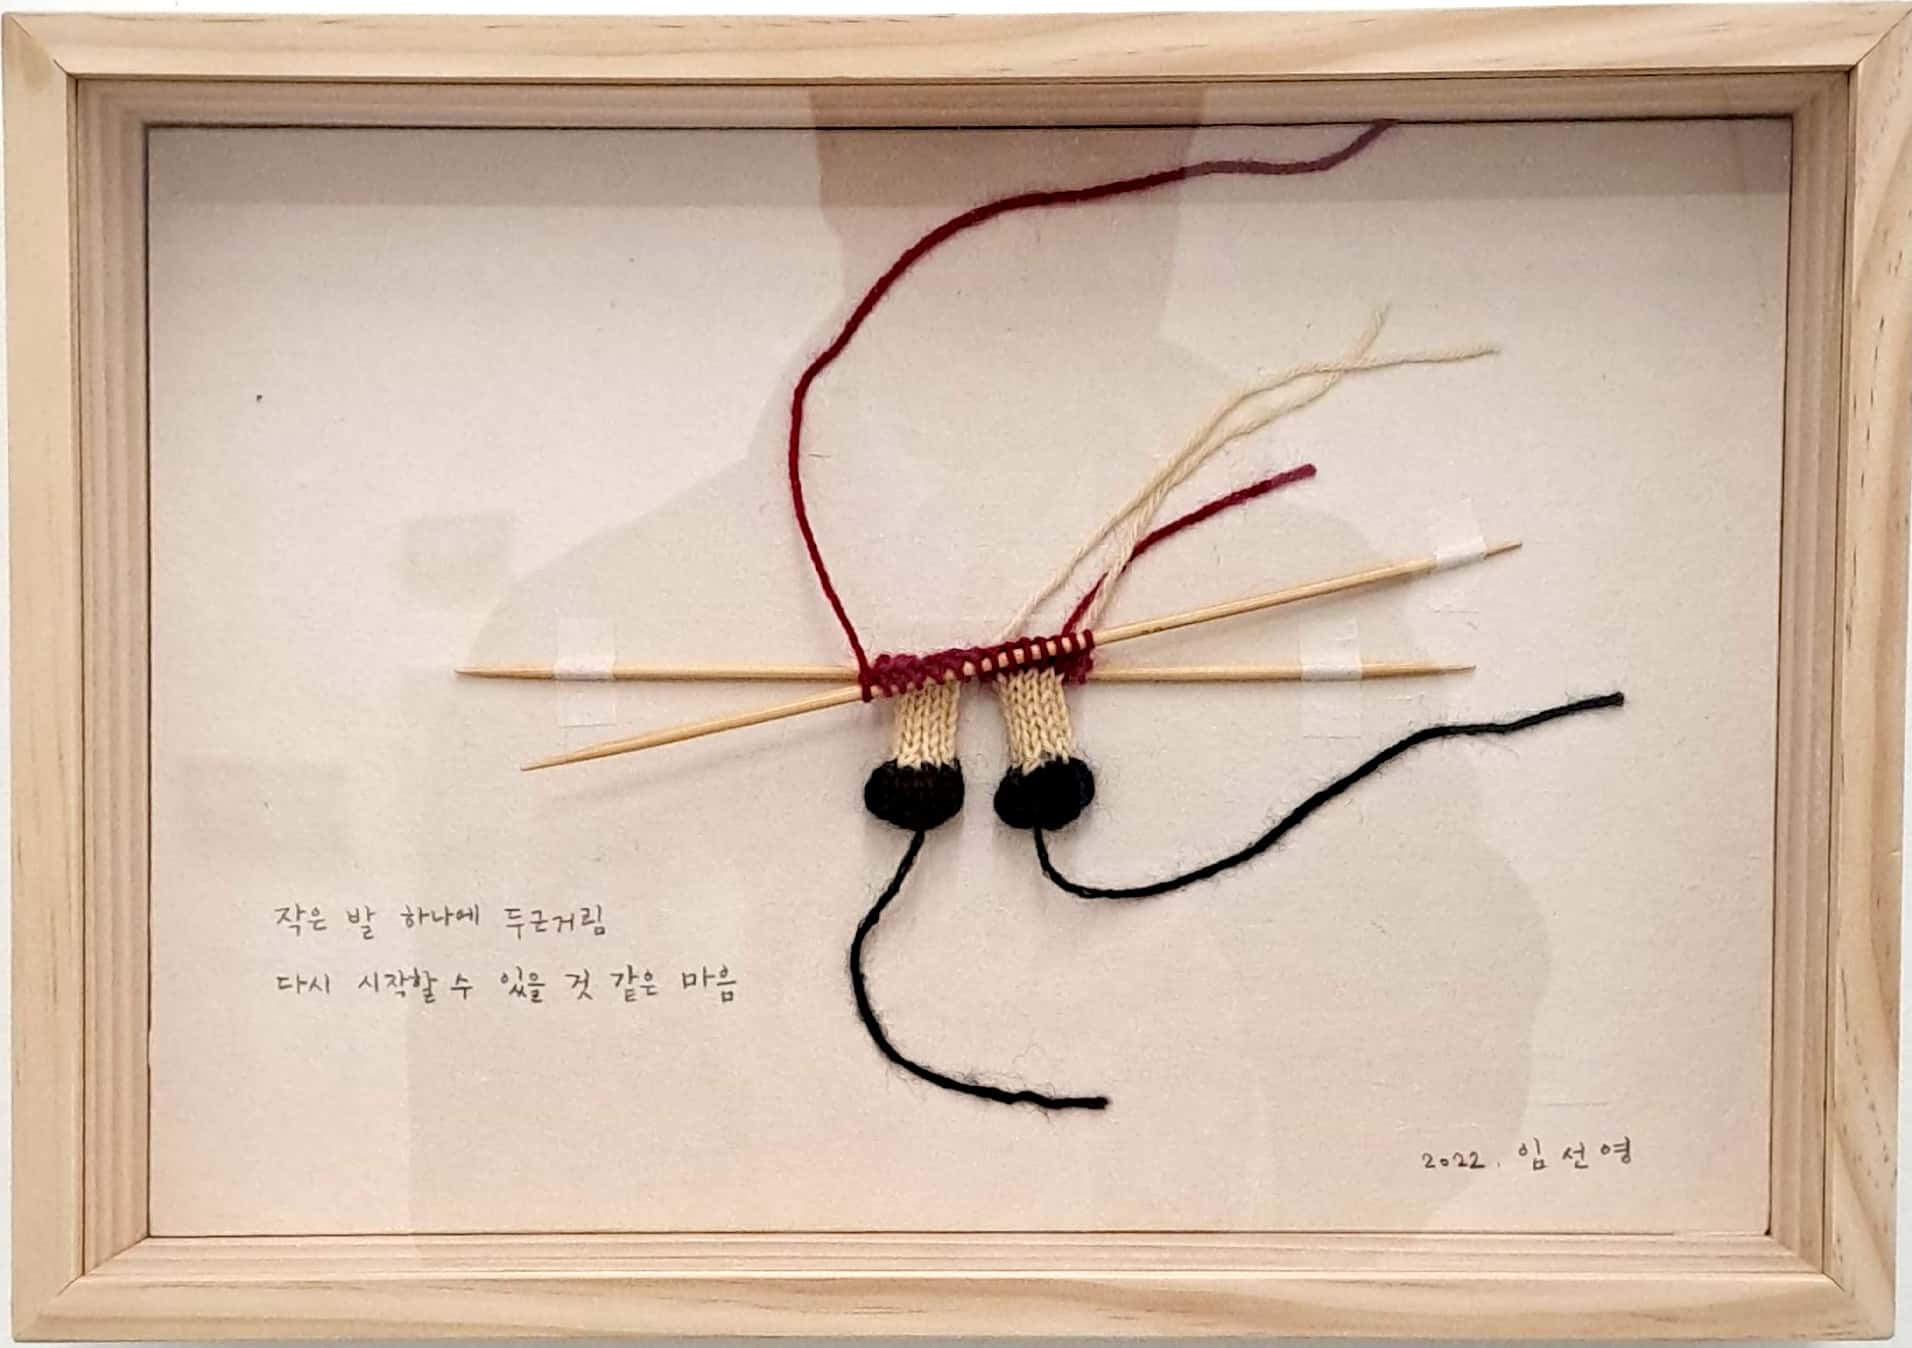 작은 발 하나에 두근거림
다시 시작할 수 있을 것 같은 마음
2022. 임선영